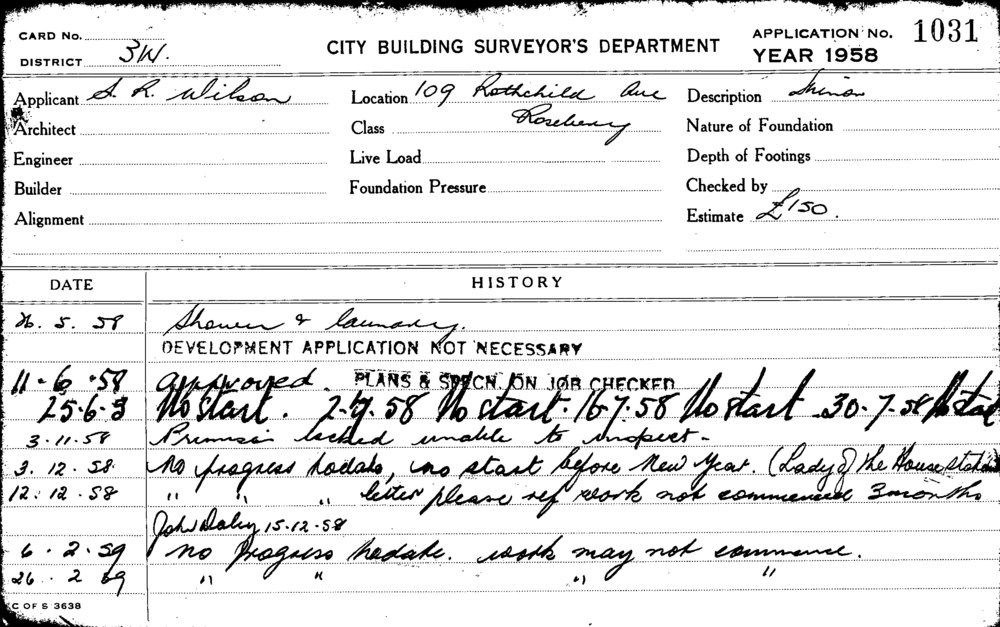 CARD No.
DISTRICT 3W.
CITY BUILDING SURVEYOR'S DEPARTMENT
APPLICATION No. 1031
YEAR 1958
Applicant S. R. Wilson Location 109 Rothchild Ave Description
Architect Class Roseberry Nature of Foundation
Engineer Live Load Depth of Footings
Builder Foundation Pressure Checked by
Alignment Estimate £150.
DATE HISTORY
26. 5. 58 Shower & laundry.
DEVELOPMENT APPLICATION NOT NECESSARY
11-6-58 approved. PLANS & SPECN. ON JOB CHECKED
25-6-5 No start. 2-7-58 No start. 16-7-58 No start. 30-7-58 No star
3-11-58 Premises locked unable to inspect-
3. 12. 58. No progress todate, no start before New Year. (Lady of the House
12. 12. 58 " " " letter please ref work not commenced 3months
John Daley 15-12-58
6. 2. 59 No progress todate. work may not commence.
26. 2 59 " " " "
C OF S 3638